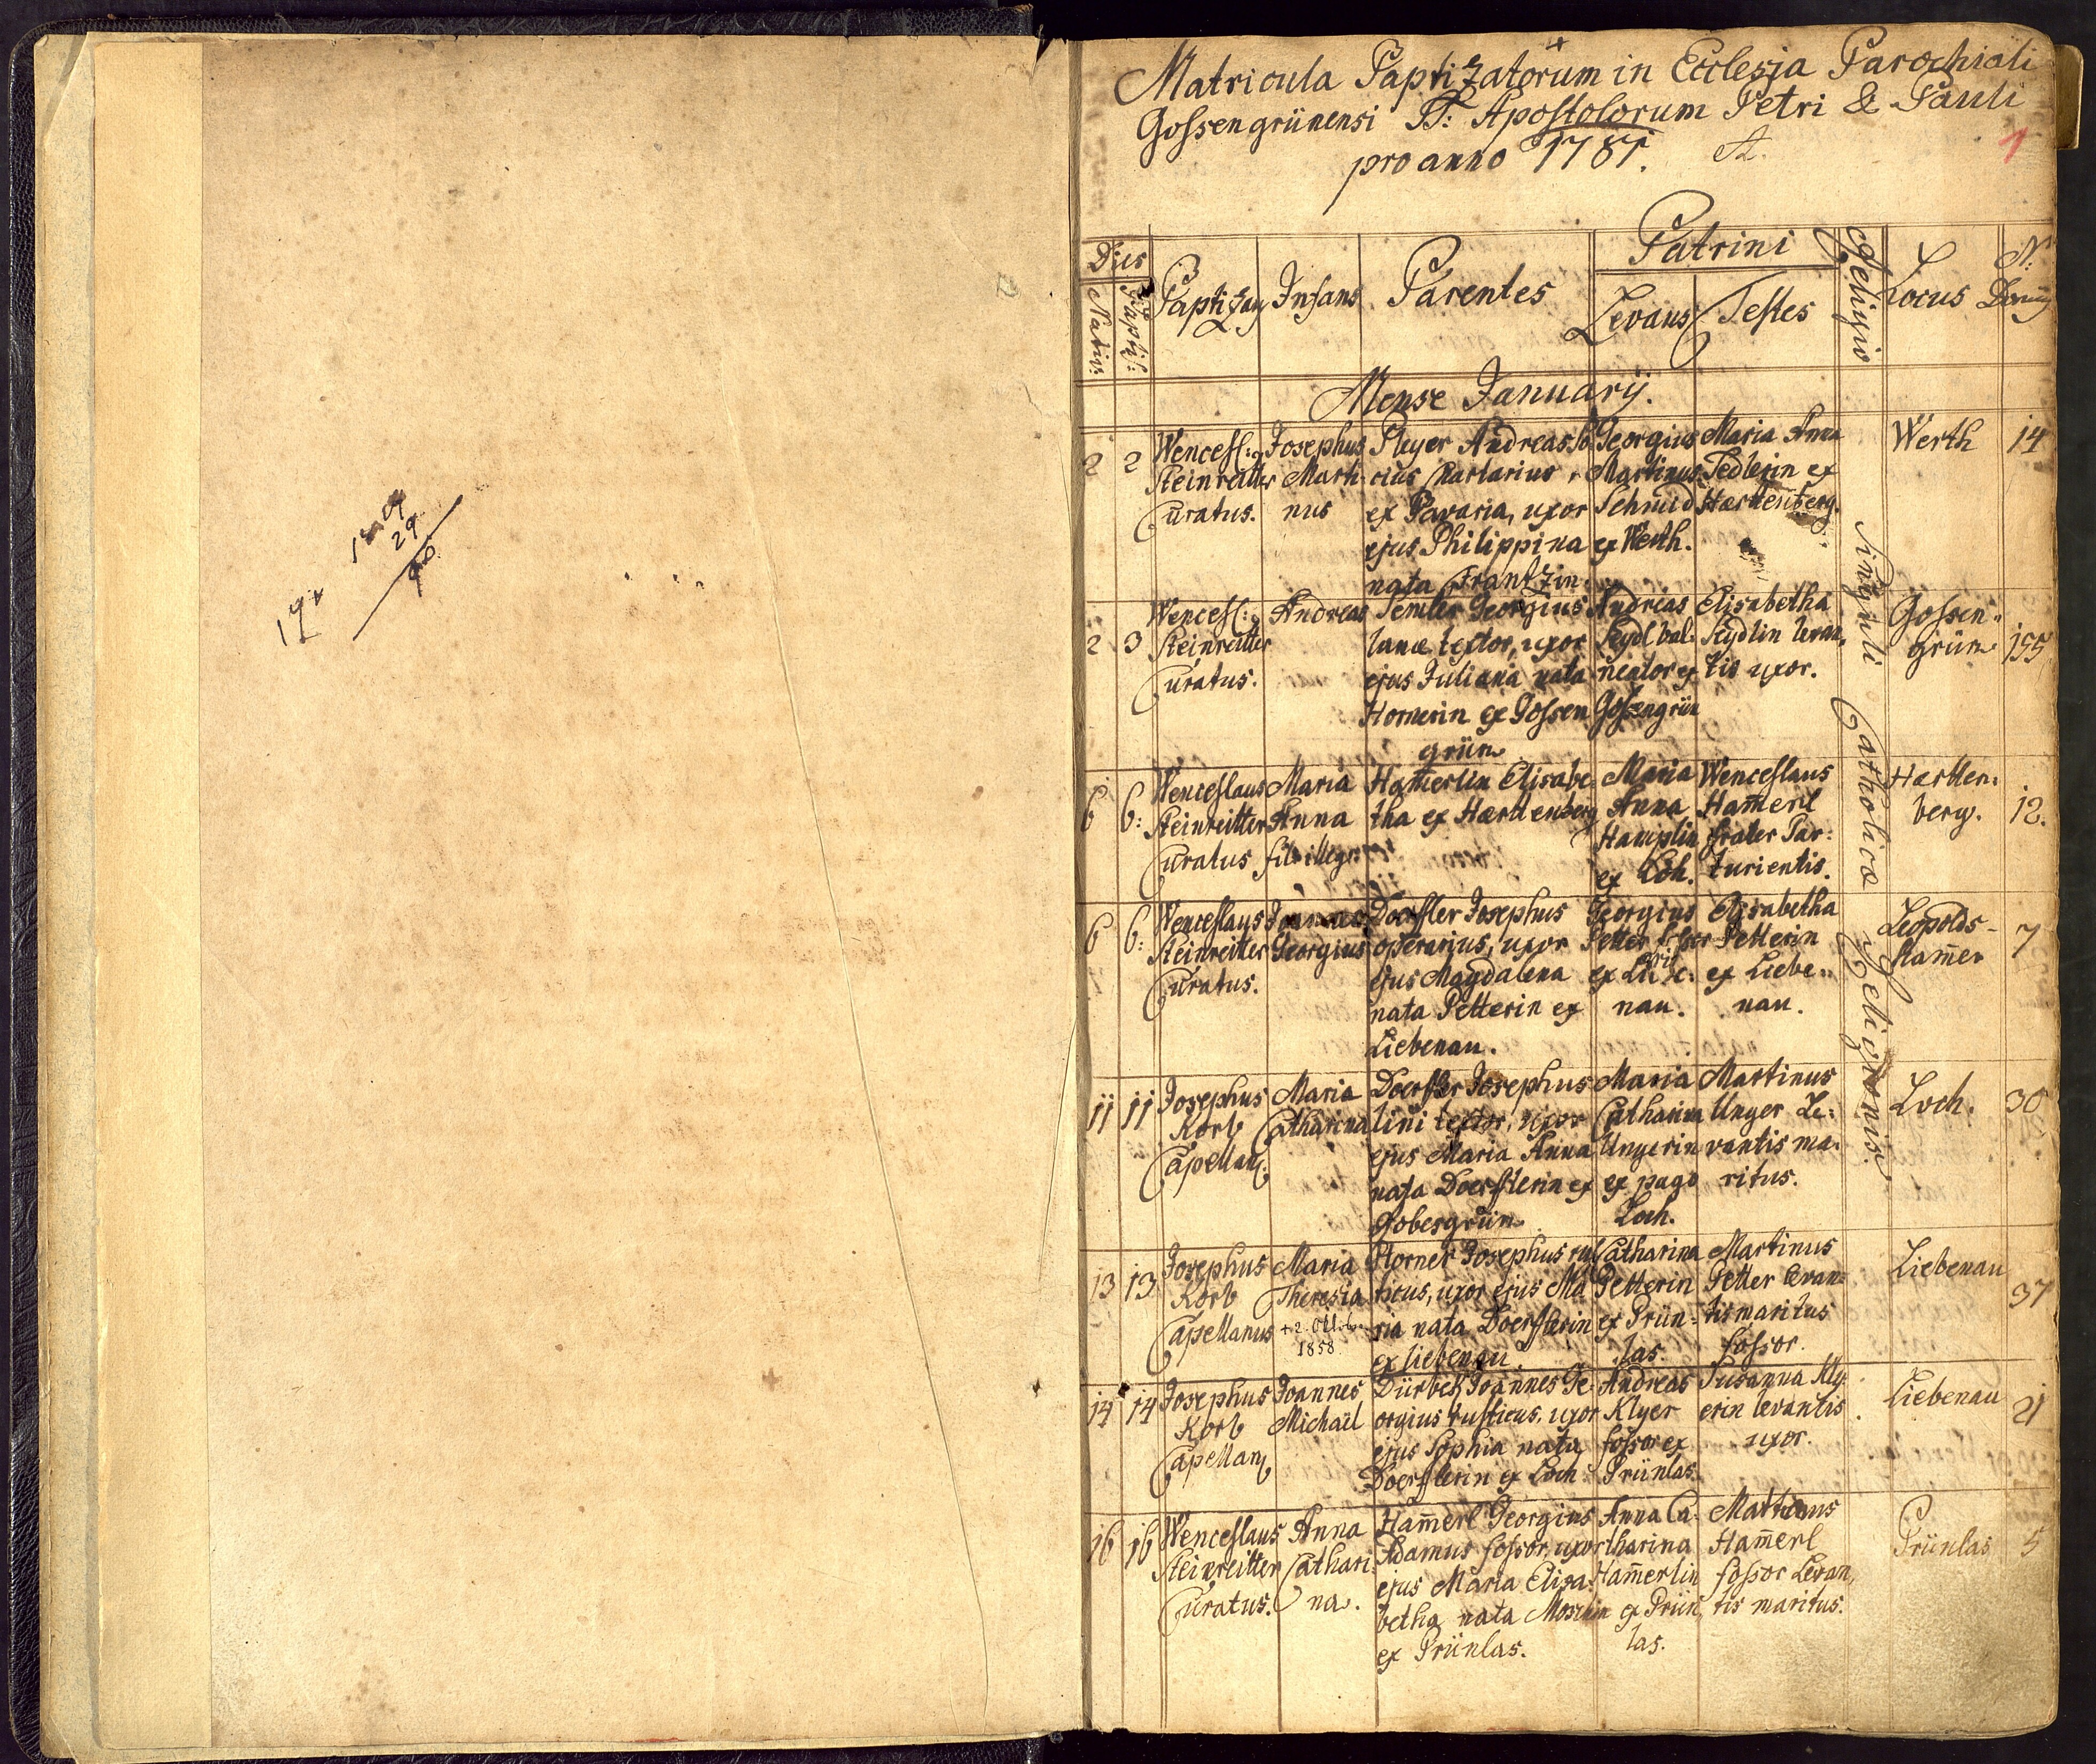 Matricula Baptizatorum in Ecclesia Parochiali
Gossengrünensi SS: Apostolorum Petri & Pauli
pro anno 1781.
1
Dies
Nativ:
Bapti:
Baptizans
Infans
Parentes
Patrini
Levans
Testes
Religio
Locus
N:
Mense Januarij.
Singuli Catholicæ Religionis.
2 2
Wencesl:
Steinreitter
Curatus.
Josephus
Marti-
nus
Pleyer Andreas
ex Bavaria, uxor
ejus Philippina
nata Frantzin.
Georgius
Martinus
Schmid
ex Werth.
Maria Anna
Sedlerin ex
Hartenberg.
Werth 14
2 3
Wencesl:
Steinreitter
Curatus.
Andreas
Semler Georgius
lanæ textor, uxor
ejus Juliana nata
Hornerin ex Gossen
grün
Andreas
Seydl bal-
neator ex
Gossengrün
Elisabetha
Seydlin levan,
tis uxor.
Gossen,,
grün 155
6 6:
Wenceslaus
Steinreitter
Curatus
Maria
Anna
Ham̄erlin Elisabe
tha ex Hartenberg
Maria
Anna
ex Loh.
Wenceslaus
Ham̄erl
frater Par:
turientis.
Harten:
berg. 12.
6 6:
Wenceslaus
Steinreitter
Curatus.
Georgius
Doerfler Josephus
operarius, uxor
ejus Magdalena
nata Petterin ex
Liebenau.
Georgius
Petter
nau.
Elisabetha
Petterin
ex Liebe,,
nau.
Leopolds-
ham̄er 7
11 11
Josephus
Korb
Capellan9
Maria
Catharina
Doerfler Josephus
lini textor, uxor
ejus Maria Anna
nata Doerflerin ex
Gobesgrün
Maria
Catharina
Ungerin
ex pago
Loch.
Martinus
Unger Le:
vantis ma:
ritus.
Loch. 30
13 13
Josephus
Korb
Capellanus
Maria
Theresia
1858
Horner Josephus rus
ticus, uxor ejus Ma
ria nata Doerflerin
ex Liebenau.
Catharina
Petterin
ex Prün-
las.
Martinus
Petter levan=
tis maritus
fossor.
Liebenau 37
14 14
Josephus
Korb
Capellan9
Joannes
Michael
Dürbek Joannes Ge-
orgius rusticus, uxor
ejus Sophia nata
Doerflerin ex Loch
Andreas
Klyer
fossor ex
Prünlas.
Susanna Kly-
erin levantis
uxor.
Liebenau 21
16 16
Wenceslaus
Steinreitter
Curatus.
Anna
Cathari-
na.
Ham̄erl Georgius
Adamus fossor, uxor
ejus Maria Elisa-
betha nata
ex Prünlas.
Anna Ca-
tharina
Ham̄erlin
ex Prün
las.
Ham̄erl
fossor Levan,
tis maritus.
Prünlas 5